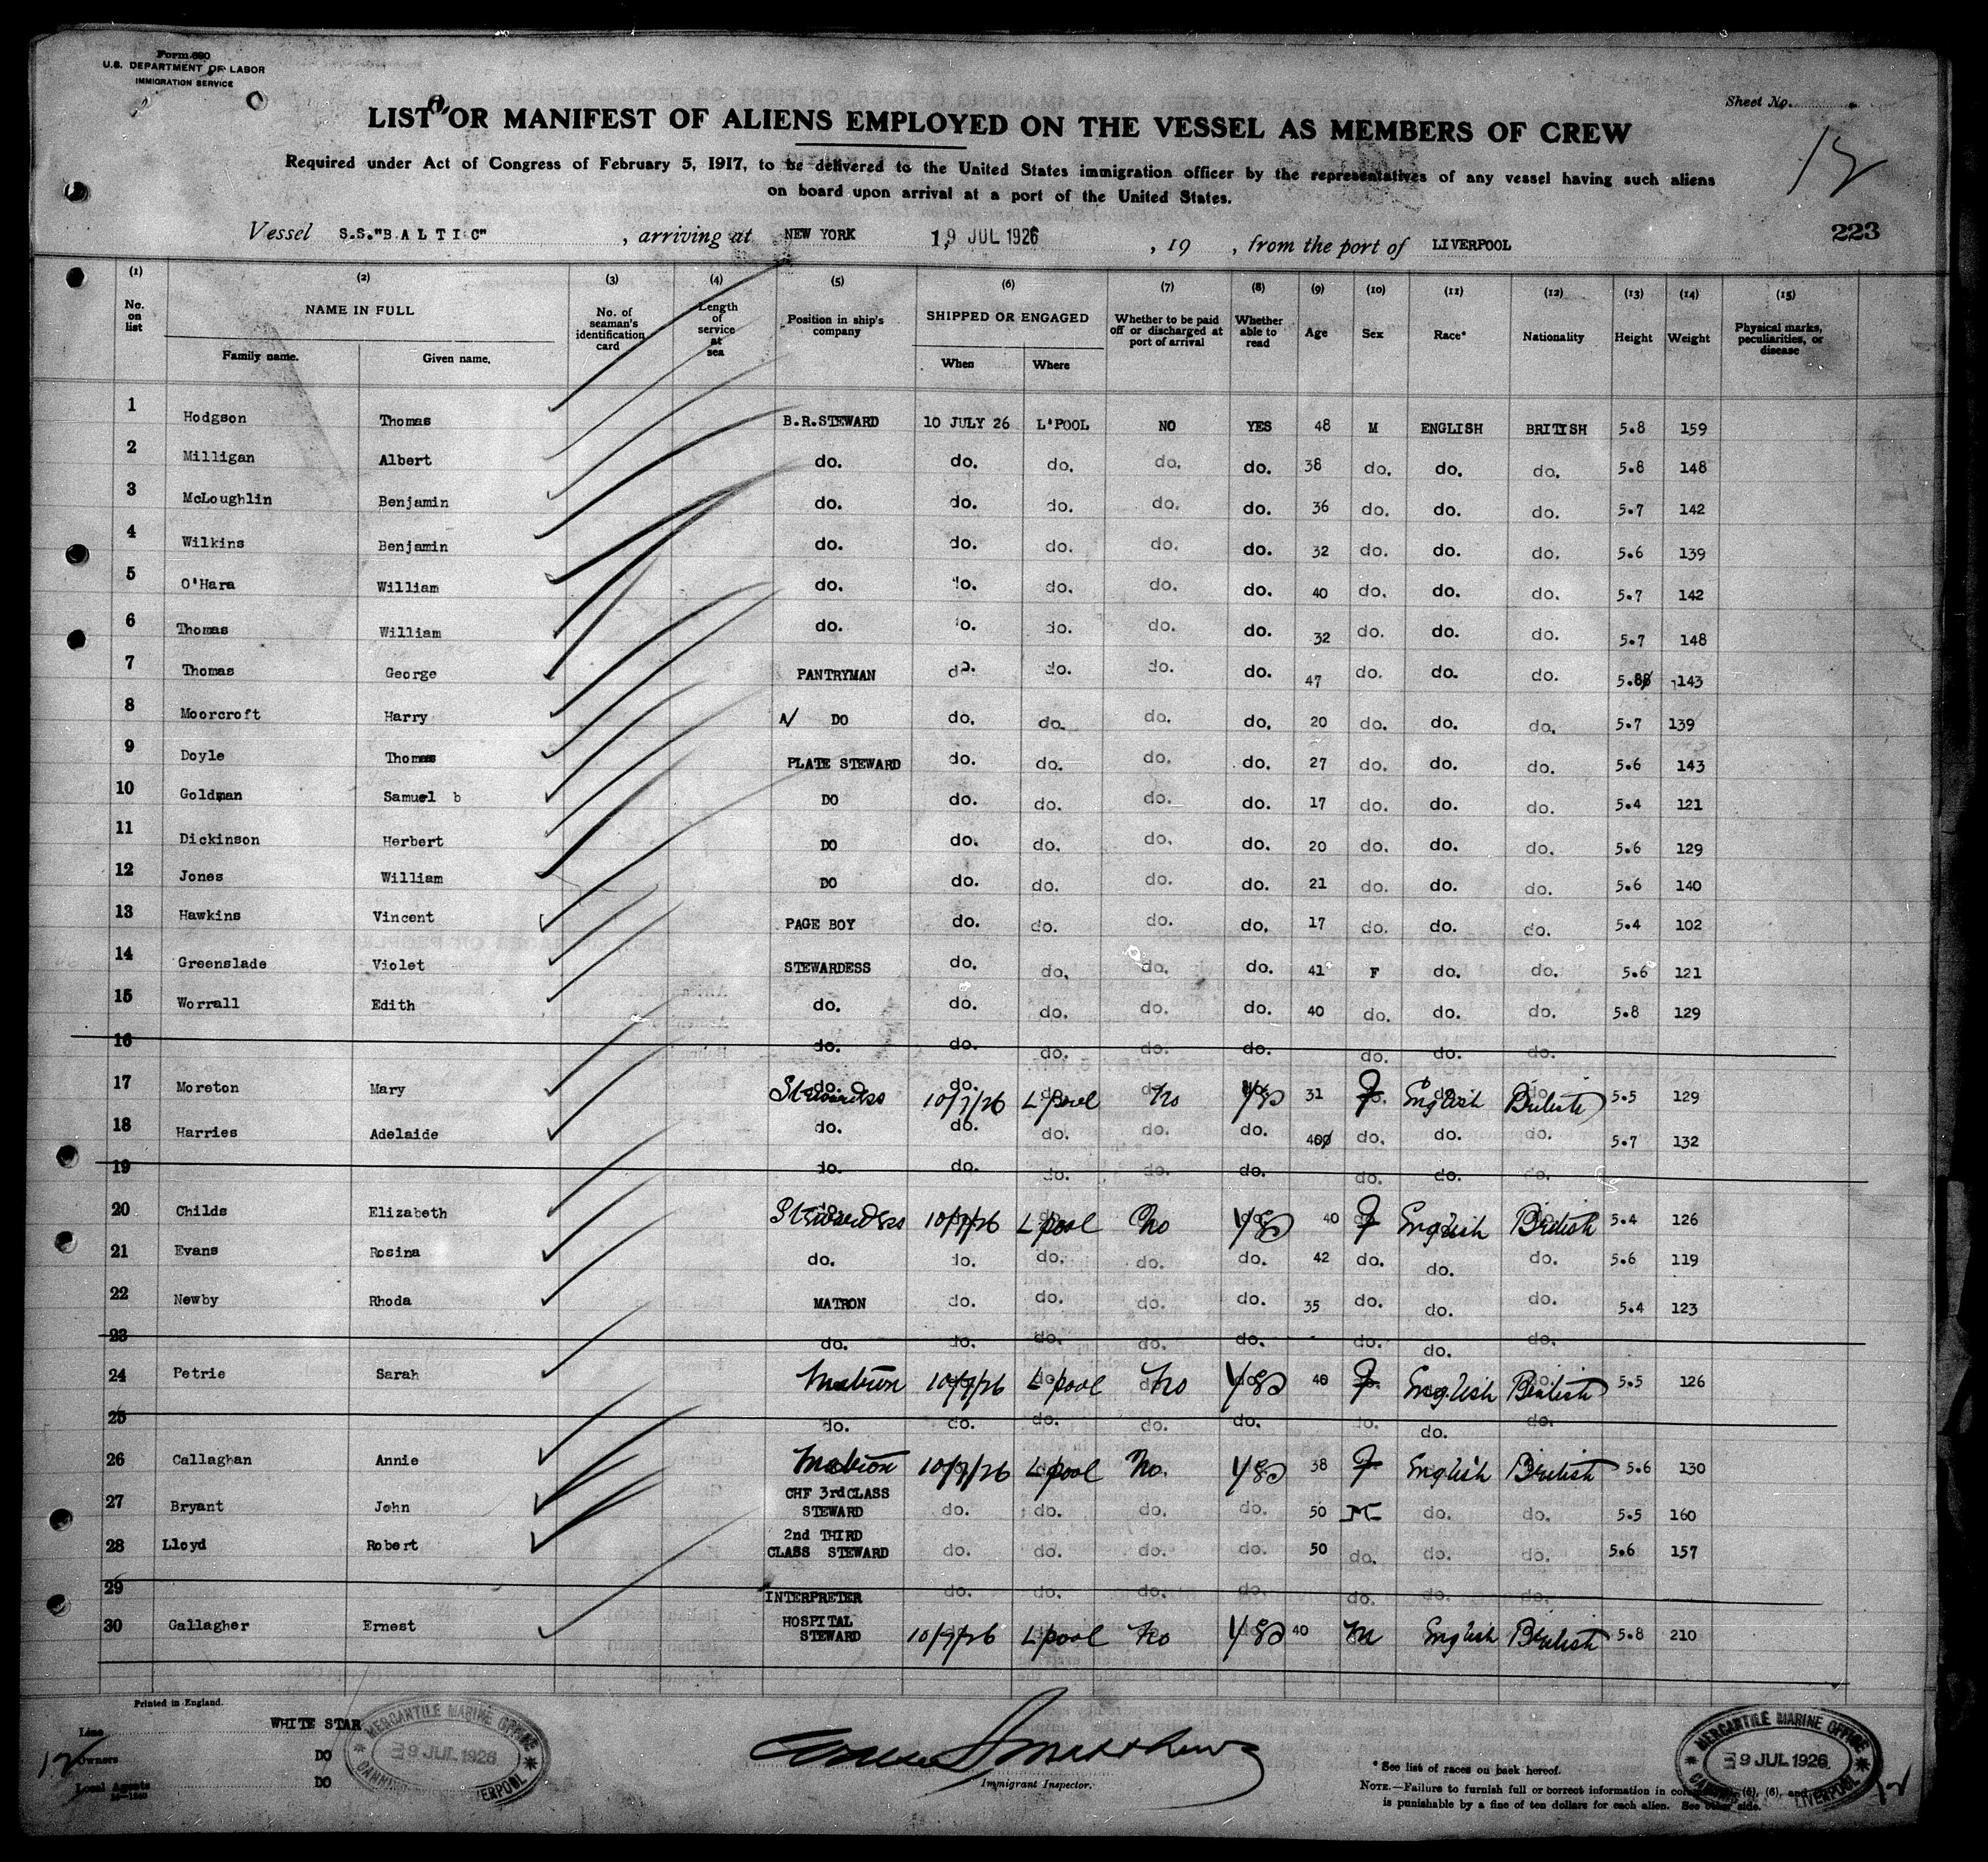 Form 680
U.S. DEPARTMENT OF LABOR
IMMIGRATION SERVICE
Sheet No.
LIST OR MANIFEST OF ALIENS EMPLOYED ON THE VESSEL AS MEMBERS OF CREW
Required under Act of Congress of February 5, 1917, to be delivered to the United States immigration officer by the representatives of any vessel having such aliens
on board upon arrival at a port of the United States.
12
223
Vessel S.S."BALTIC", arriving at NEW YORK 19 JUL 1926, 19 , from the port of LIVERPOOL
(1) (2) (3) (4) (5) (6) (7) (8) (9) (10) (11) (12) (13) (14) (15)
No. on list NAME IN FULL Family name. Given name. No. of seaman's identification card Length of service at sea Position in ship's company SHIPPED OR ENGAGED When Where Whether to be paid off or discharged at port of arrival Whether able to read Age Sex Race* Nationality Height Weight Physical marks, peculiarities, or disease
1 Hodgson Thomas B.R.STEWARD 10 JULY 26 L'POOL NO YES 48 M ENGLISH BRITISH 5.8 159
2 Milligan Albert do. do. do. do. do. 38 do. do. do. 5.8 148
3 McLoughlin Benjamin do. do. do. do. do. 36 do. do. do. 5.7 142
4 Wilkins Benjamin do. do. do. do. do. 32 do. do. do. 5.6 139
5 O'Hara William do. do. do. do. do. 40 do. do. do. 5.7 142
6 Thomas William do. do. do. do. do. 32 do. do. do. 5.7 148
7 Thomas George PANTRYMAN do. do. do. do. 47 do. do. do. 5.8 143
8 Moorcroft Harry A/ DO do. do. do. do. 20 do. do. do. 5.7 139
9 Doyle Thomas PLATE STEWARD do. do. do. do. 27 do. do. do. 5.6 143
10 Goldman Samuel b DO do. do. do. do. 17 do. do. do. 5.4 121
11 Dickinson Herbert DO do. do. do. do. 20 do. do. do. 5.6 129
12 Jones William DO do. do. do. do. 21 do. do. do. 5.6 140
13 Hawkins Vincent PAGE BOY do. do. do. do. 17 do. do. do. 5.4 102
14 Greenslade Violet STEWARDESS do. do. do. do. 41 F do. do. 5.6 121
15 Worrall Edith do. do. do. do. do. 40 do. do. do. 5.8 129
16 do. do. do. do. do. do. do. do.
17 Moreton Mary Stewardess 10/7/26 L'pool No Yes 31 F English British 5.5 129
18 Harries Adelaide do. do. do. do. do. 40 do. do. do. 5.7 132
19 do. do. do. do. do. do. do. do.
20 Childs Elizabeth Stewardess 10/7/26 L'pool No Yes 40 F English British 5.4 126
21 Evans Rosina do. do. do. do. do. 42 do. do. do. 5.6 119
22 Newby Rhoda MATRON do. do. do. do. 35 do. do. do. 5.4 123
23 do. do. do. do. do. do. do. do.
24 Petrie Sarah Matron 10/7/26 L'pool No Yes 40 F English British 5.5 126
25 do. do. do. do. do. do. do. do.
26 Callaghan Annie Matron 10/7/26 L'pool No. Yes 38 F English British 5.6 130
27 Bryant John CHF 3rd CLASS STEWARD do. do. do. do. 50 M do. do. 5.5 160
28 Lloyd Robert 2nd THIRD CLASS STEWARD do. do. do. do. 50 do. do. do. 5.6 157
29 INTERPRETER do. do. do. do. do. do. do.
30 Gallagher Ernest HOSPITAL STEWARD 10/7/26 L'pool No Yes 40 M English British 5.8 210
Printed in England.
Line WHITE STAR
Owners DO
Local Agents DO
12
MERCANTILE MARINE OFFICE
9 JUL 1926
LIVERPOOL
Immigrant Inspector.
* See list of races on back hereof.
NOTE.—Failure to furnish full or correct information in columns (5), (6), and
is punishable by a fine of ten dollars for each alien. See other side.
MERCANTILE MARINE OFFICE
9 JUL 1926
LIVERPOOL
12